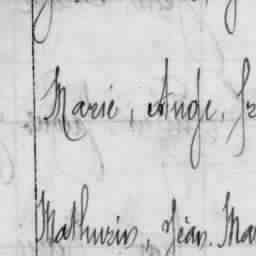 Marie, Ange, Fr
Mathurin, Jean. Ma